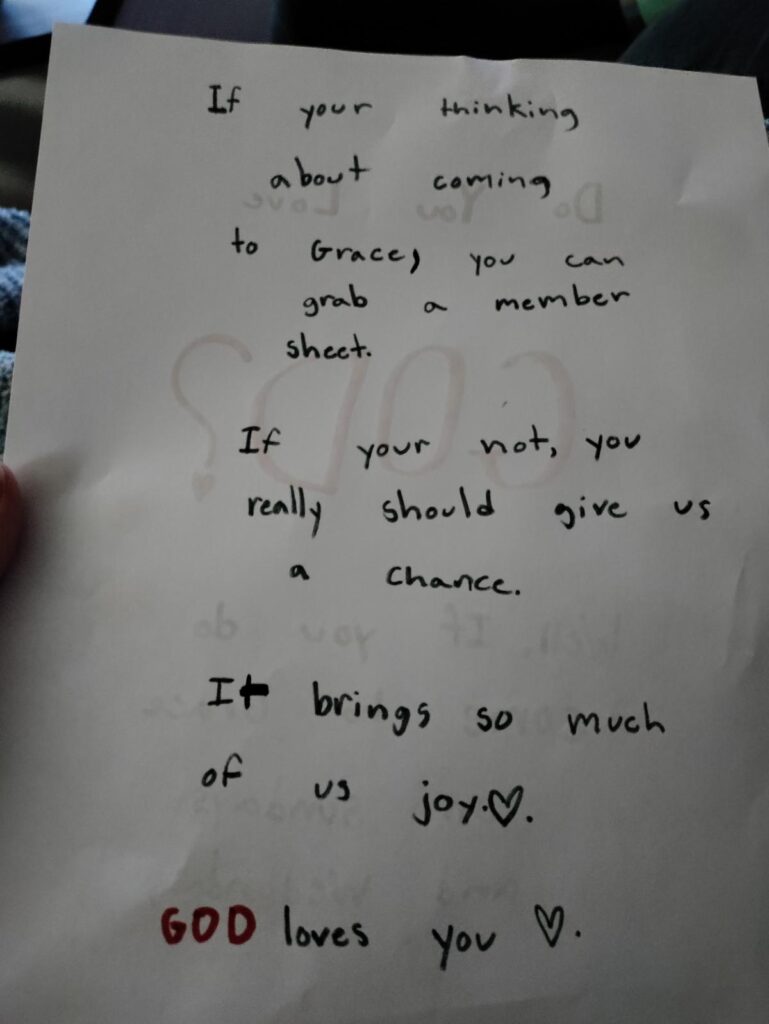 If your thinking
about coming
to Grace, you can
grab a member
sheet.
If your not, you
really should give us
a chance.
It brings so much
of us joy.♡.
GOD loves you ♡.
Do You Love
GOD?
Well, If you do